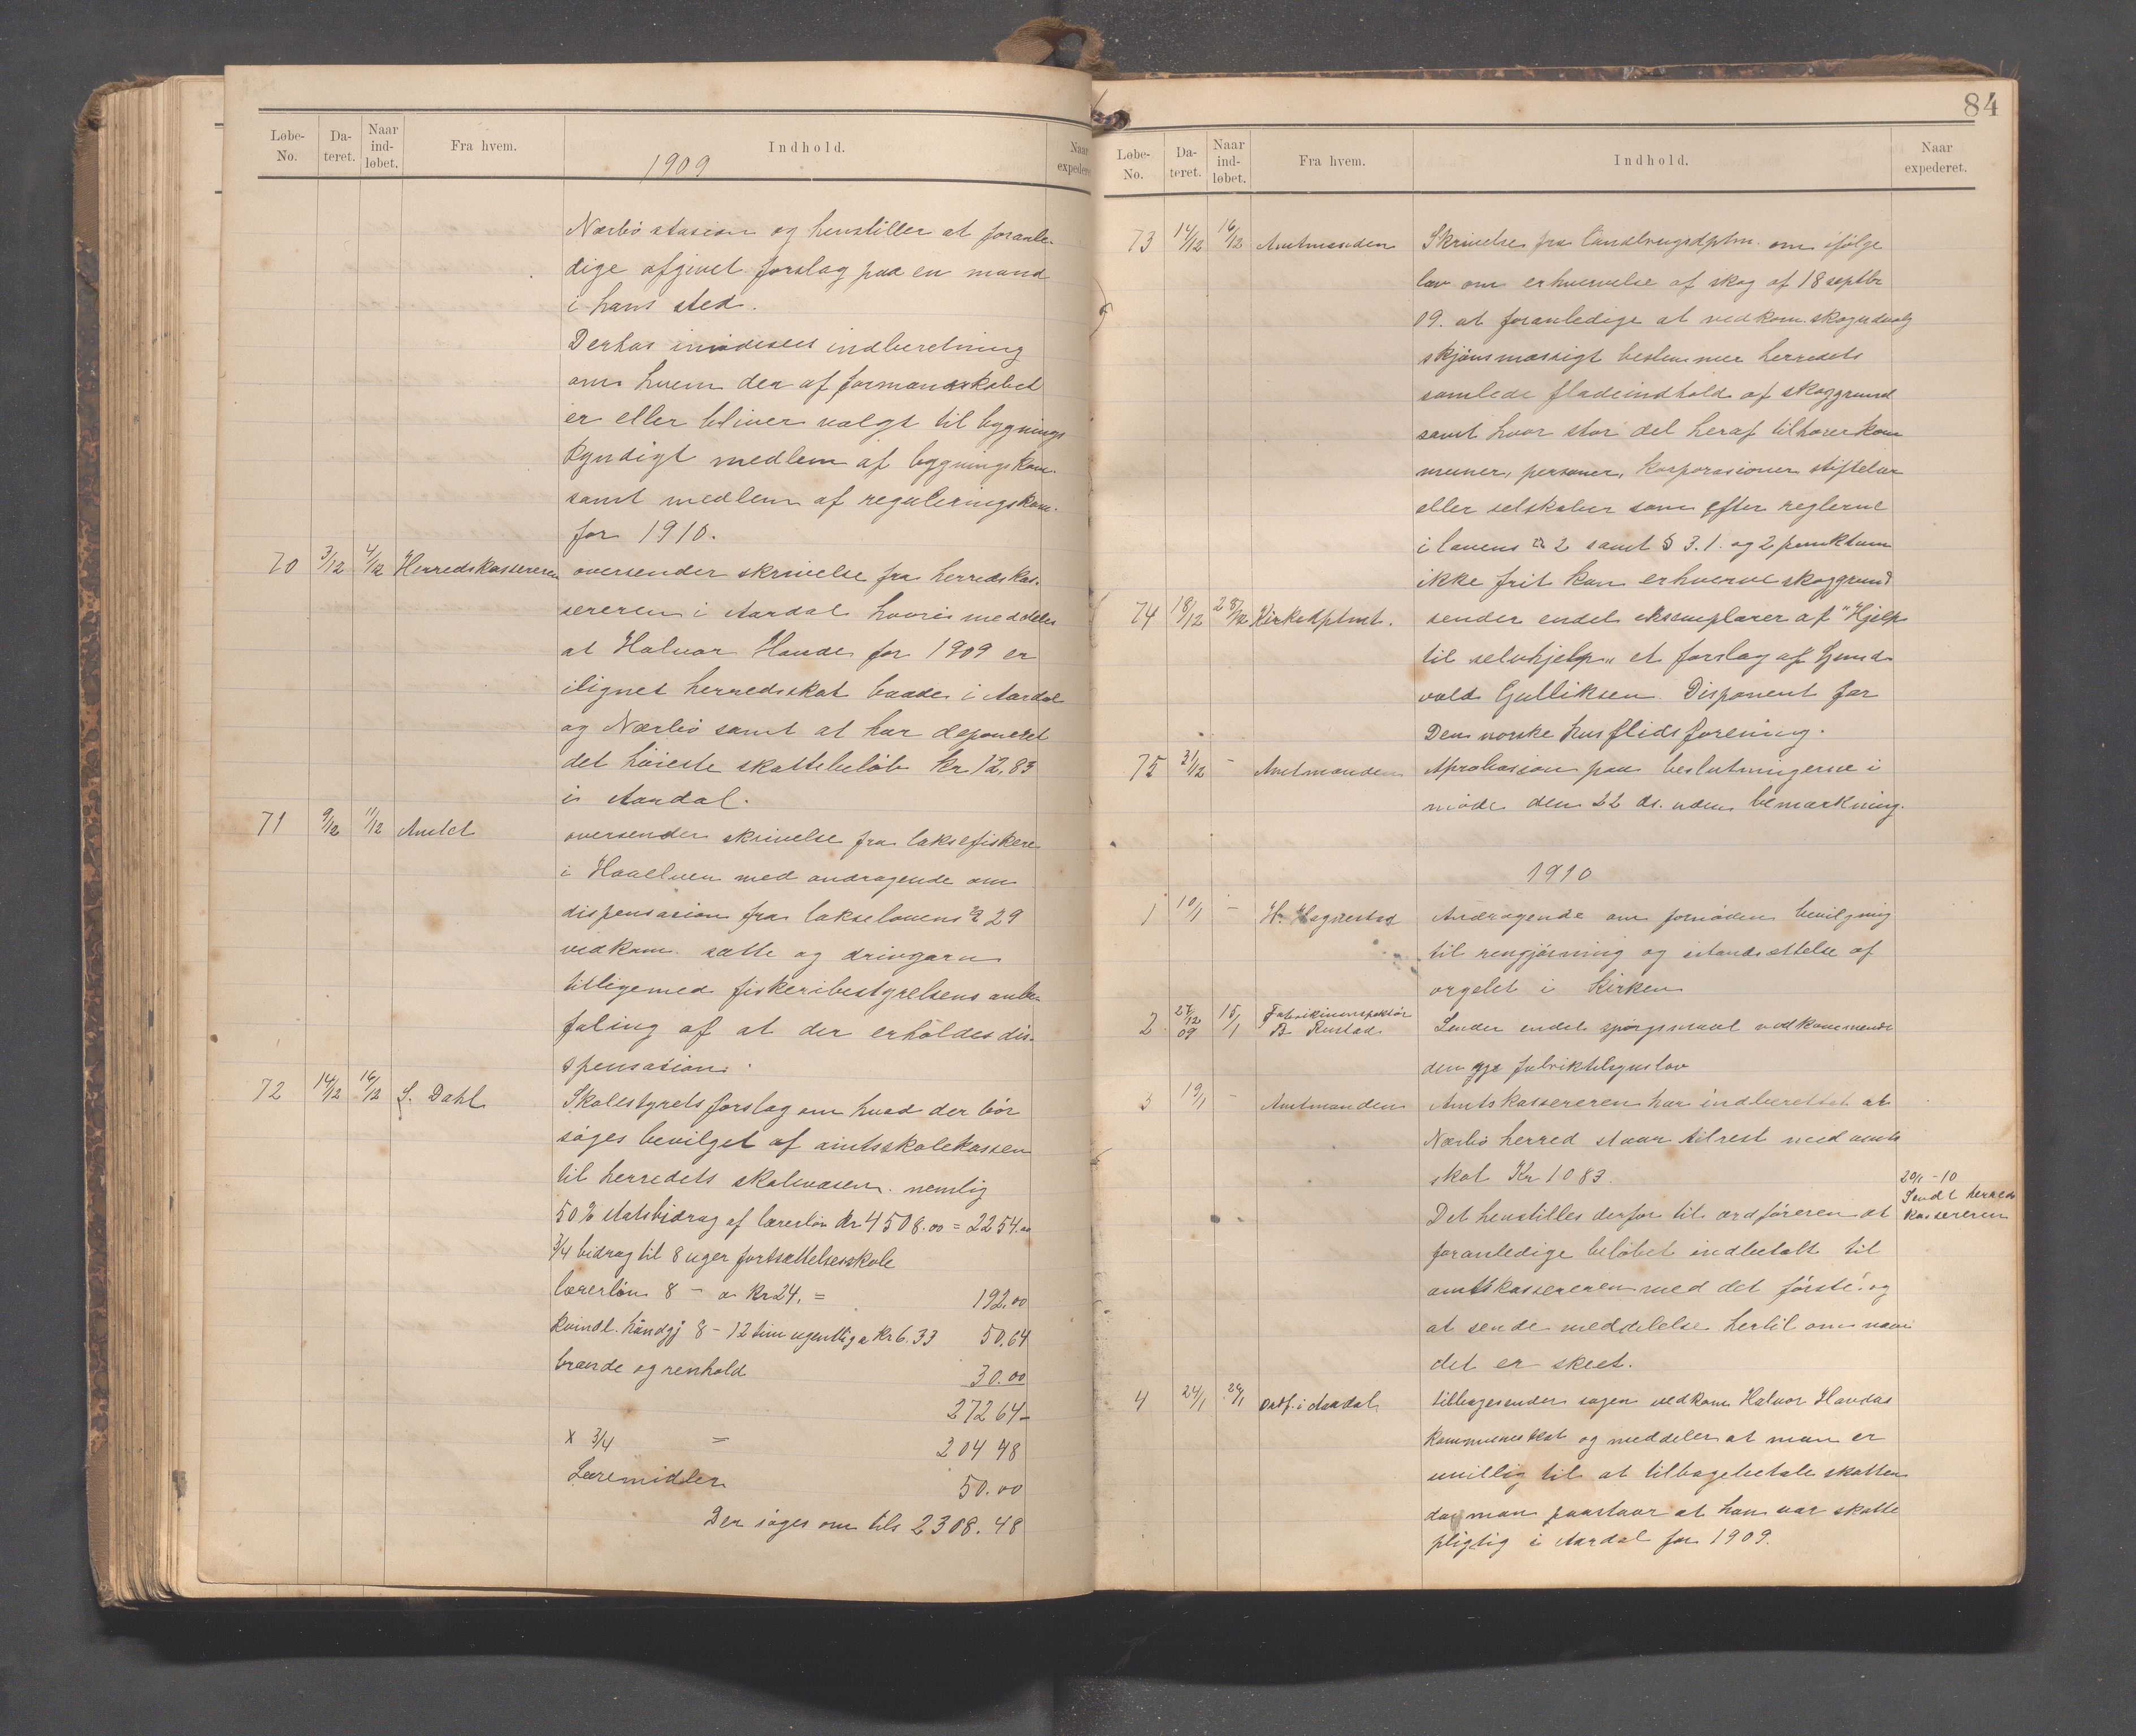 Løbe-No. Da-teret. Naar ind-løbet. Fra hvem. Indhold. Naar expederet
1909
Nærbö stasion og henstiller at foranle-
dige afgivet forslag paa en mand
i hans sted.
Derhos imödesees indberetning
om hvem der af formandskabet
er eller bliver valgt til bygnings
kyndigt medlem af bygningskom.
samt medlem af reguleringskom.
for 1910.
70 3/12 4/12 Herredskassereren oversender skrivelse fra herredskas-
sereren i Aardal hvori meddeles
at Halvor Haude for 1909 er
ilignet herredsskat baade i Aardal
og Nærbö samt at har deponeret
det höieste skattebelöb kr 12,83
i Aardal.
71 9/12 11/12 Amtet oversender skrivelse fra laksefiskere
i Haaelven med andragende om
dispensasion fra lakselovens § 29
vedkom. sætte og drivgarn
tilligemed fiskeribestyrelsens anbe-
faling af at der erholdes dis-
spensasion.
72 14/12 16/12 S. Dahl Skolestyrets forslag om hvad der bör
söges bevilget af amtsskolekassen
til herredets skolevæsen. nemlig
50% statsbidrag af lærerlön kr 4508.00 = 2254.00
3/4 bidrag til 8 uger fortsættelsesskole
lærerlön 8 - a kr 24. = 192.00
kvindl. håndgj 8 - 12 tim ugentlig a kr 6.33 50.64
brænde og renhold 30.00
272 64
x 3/4 = 204 48
Læremidler 50.00
Der söges om tils 2308.48
84
Løbe-No. Da-teret. Naar ind-løbet. Fra hvem. Indhold. Naar expederet.
73 14/12 16/12 Amtmanden Skrivelse fra landbrugsdptm. om ifölge
lov om erhvervelse af skog af 18 septbr
09. at foranledige at vedkom. skogudvalg
skjönsmæssigt bestemmer herredets
samlede fladeindhold af skoggrund
samt hvor stor del heraf tilhører kom
muner, personer, korporasioner stiftelser
eller selskaber som efter reglerne
i lovens § 2 samt § 3.1. og 2 punktum
ikke frit kan erhverve skoggrund
74 18/12 28/12 Kirkedptmt. sender endel eksemplarer af "Hjelp
til selvhjelp" et forslag af Gund-
vald Gulliksen. Disponent for
Den norske husflidsforening.
75 31/12 - Amtmanden Aprobasion paa beslutningerne i
möde den 22 ds. uden bemærkning.
1910
1 10/1 - H. Hognestad Andragende om fornöden bevilgning
til rengjörning og istandsættelse af
orgelet i Kirken
2 27/12 09 15/1 Fabrikinspektör
B. Rustad. Sender endel spörgsmaal vedkommende
den nye fabriktilsynslov
3 19/1 - Amtmanden Amtskassereren har indberettet at
Nærbö herred staar tilrest med amts
skat Kr 1083.
Det henstilles derfor til ordföreren at
20/1 - 10
Sendt herreds
kassereren
foranledige belöbet indbetalt til
amtskassereren med det förste og
at sende meddelelse hertil om naar
det er skeet.
4 24/1 29/1 Ordf. i Aardal tilbagesender sagen vedkom Halvor Haudes
kommuneskat og meddeler at man er
uvillig til at tilbagebetale skatten
da man paastaar at han var skatte
pligtig i Aardal for 1909.